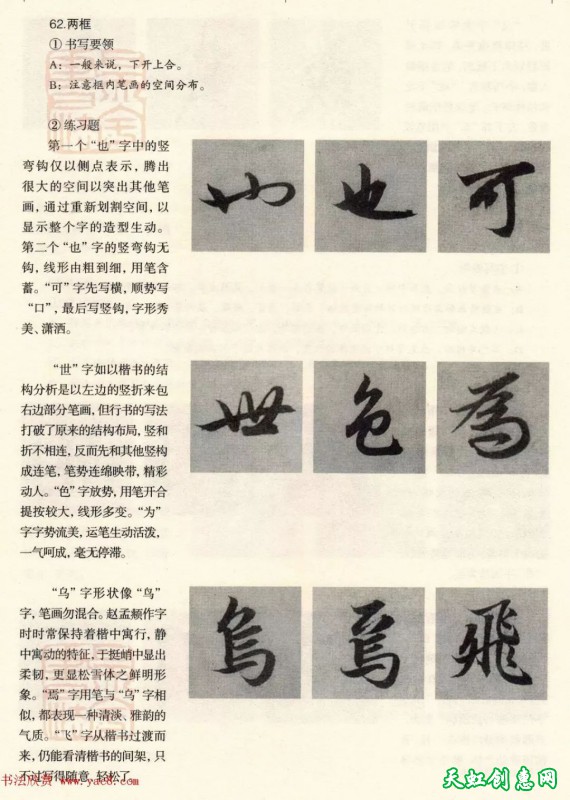 62.两框
① 书写要领
A：一般来说，下开上合。
B：注意框内笔画的空间分布。
② 练习题
第一个“也”字中的竖
弯钩仅以侧点表示，腾出
很大的空间以突出其他笔
画，通过重新划割空间，以
显示整个字的造型生动。
第二个“也”字的竖弯钩无
钩，线形由粗到细，用笔含
蓄。“可”字先写横，顺势写
“口”，最后写竖钩，字形秀
美、潇洒。
也 也 可
“世”字如以楷书的结
构分析是以左边的竖折来包
右边部分笔画，但行书的写法
打破了原来的结构布局，竖和
折不相连，反而先和其他竖构
成连笔，笔势连绵映带，精彩
动人。“色”字放势，用笔开合
提按较大，线形多变。“为”
字字势流美，运笔生动活泼，
一气呵成，毫无停滞。
世 色 為
“乌”字形状像“鸟”
字，笔画勿混合。赵孟頫作字
时时常保持着楷中寓行，静
中寓动的特征，于挺峭中显出
柔韧，更显松雪体之鲜明形
象。“焉”字用笔与“乌”字相
似，都表现一种清淡、雅韵的
气质。“飞”字从楷书过渡而
来，仍能看清楷书的间架，只
不过写得随意、轻松了。
烏 焉 飛
书法欣赏 www.yac8.com
天虹创意网